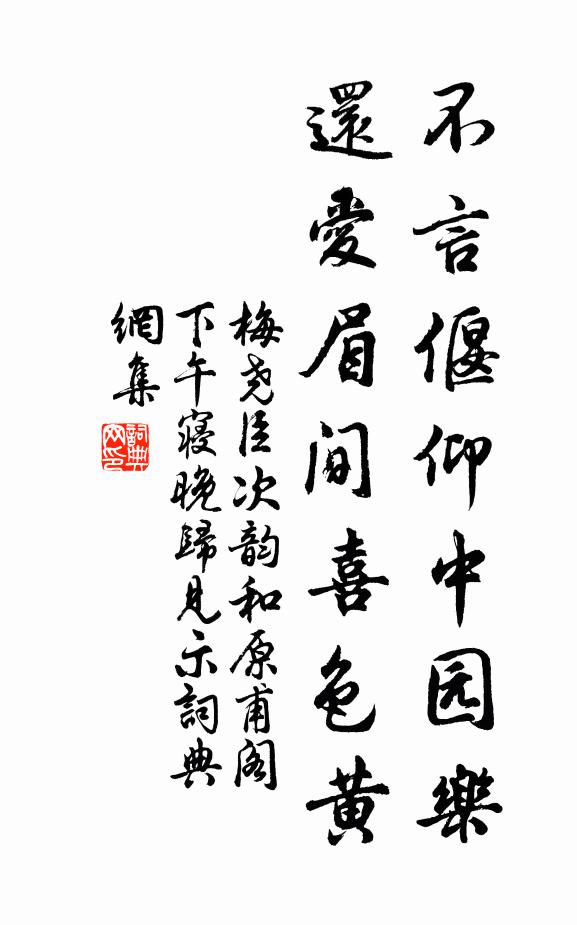 不言偃仰中园樂
還愛眉間喜色黃
梅尧臣次韵和原甫阁
下午寢晚歸見示詞典
網集
詞典网印